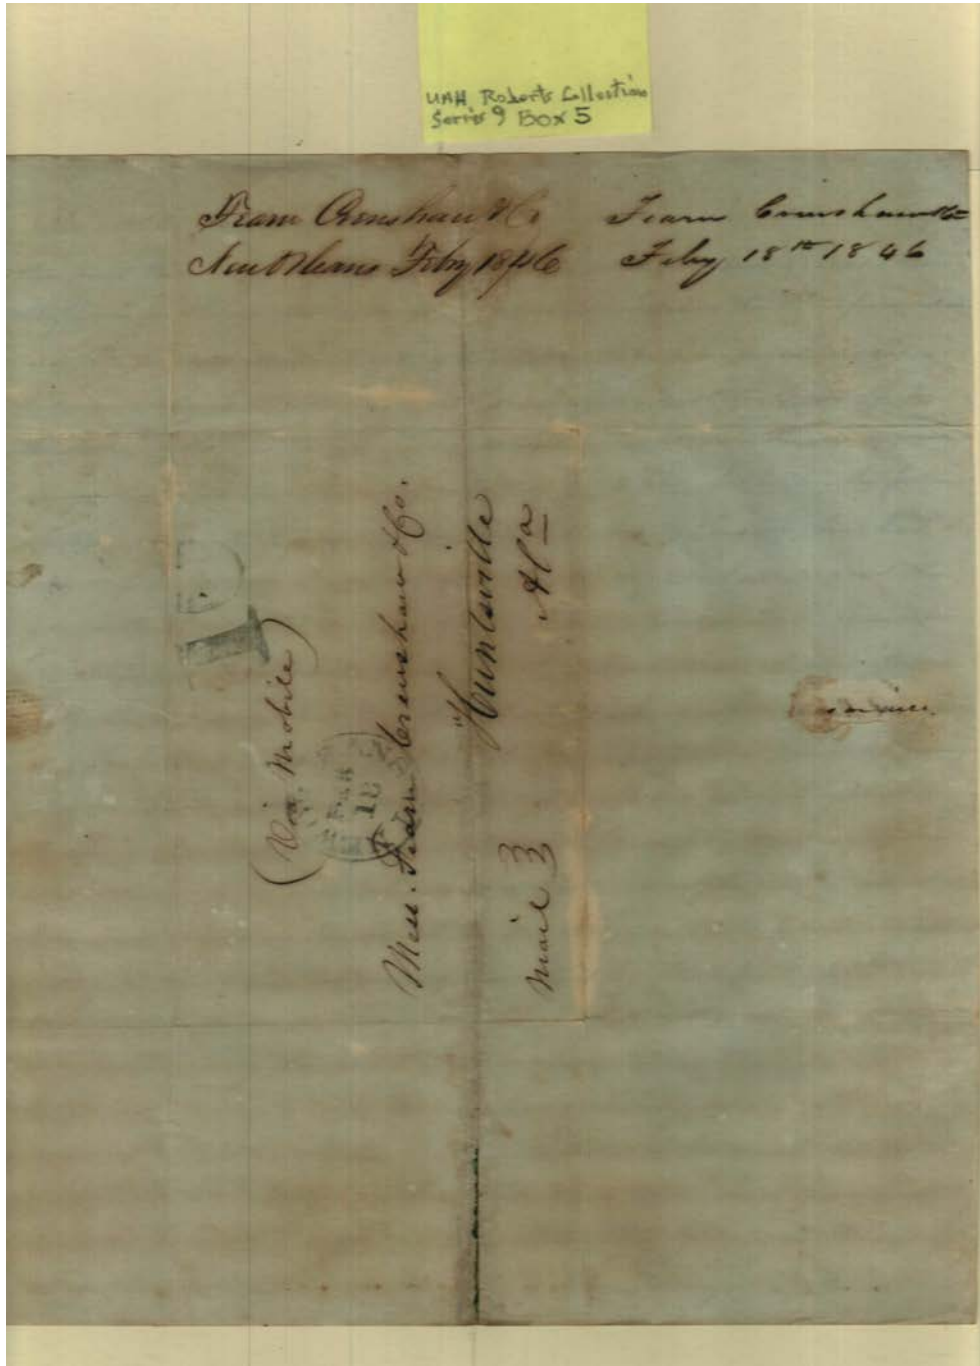 UAH Roberts Collection
Series 9 Box 5
Fearn Crenshaw & Co
New Orleans Feby 1846
Fearn Crenshaw & Co
Feby 18th 1846
10
(Via Mobile)
18
Mess. Fearn Crenshaw & Co.
Huntsville
Ala
Mail 33